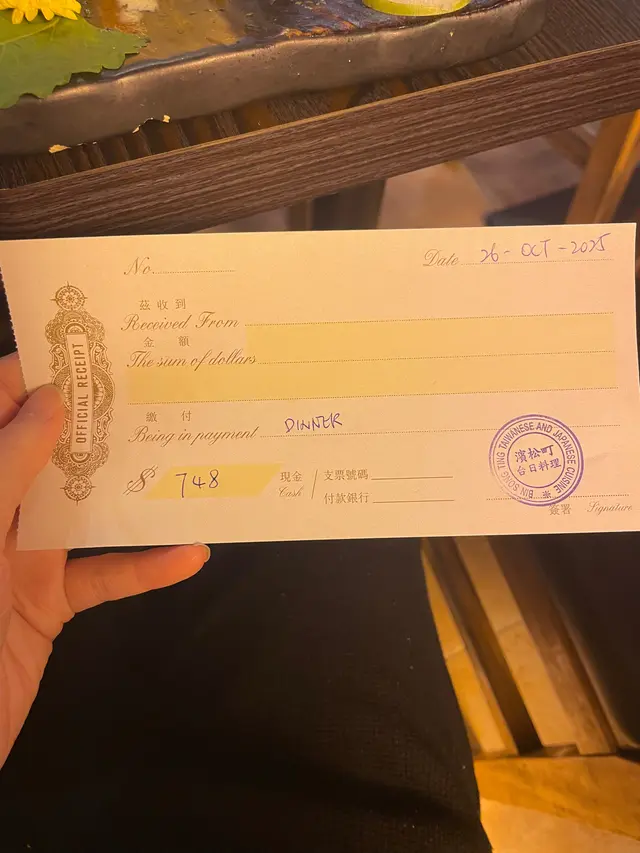 No.
Date 26-OCT-2025
OFFICIAL RECEIPT
茲收到
Received From
金額
The sum of dollars
繳付
Being in payment DINNER
$ 748
現金
Cash
支票號碼
付款銀行
BIN SONG TING TAIWANESE AND JAPANESE CUISINE
濱松町
台日料理
簽署 Signature